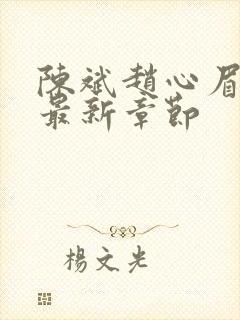 陳斌趙心眉
最新章節
楊文光